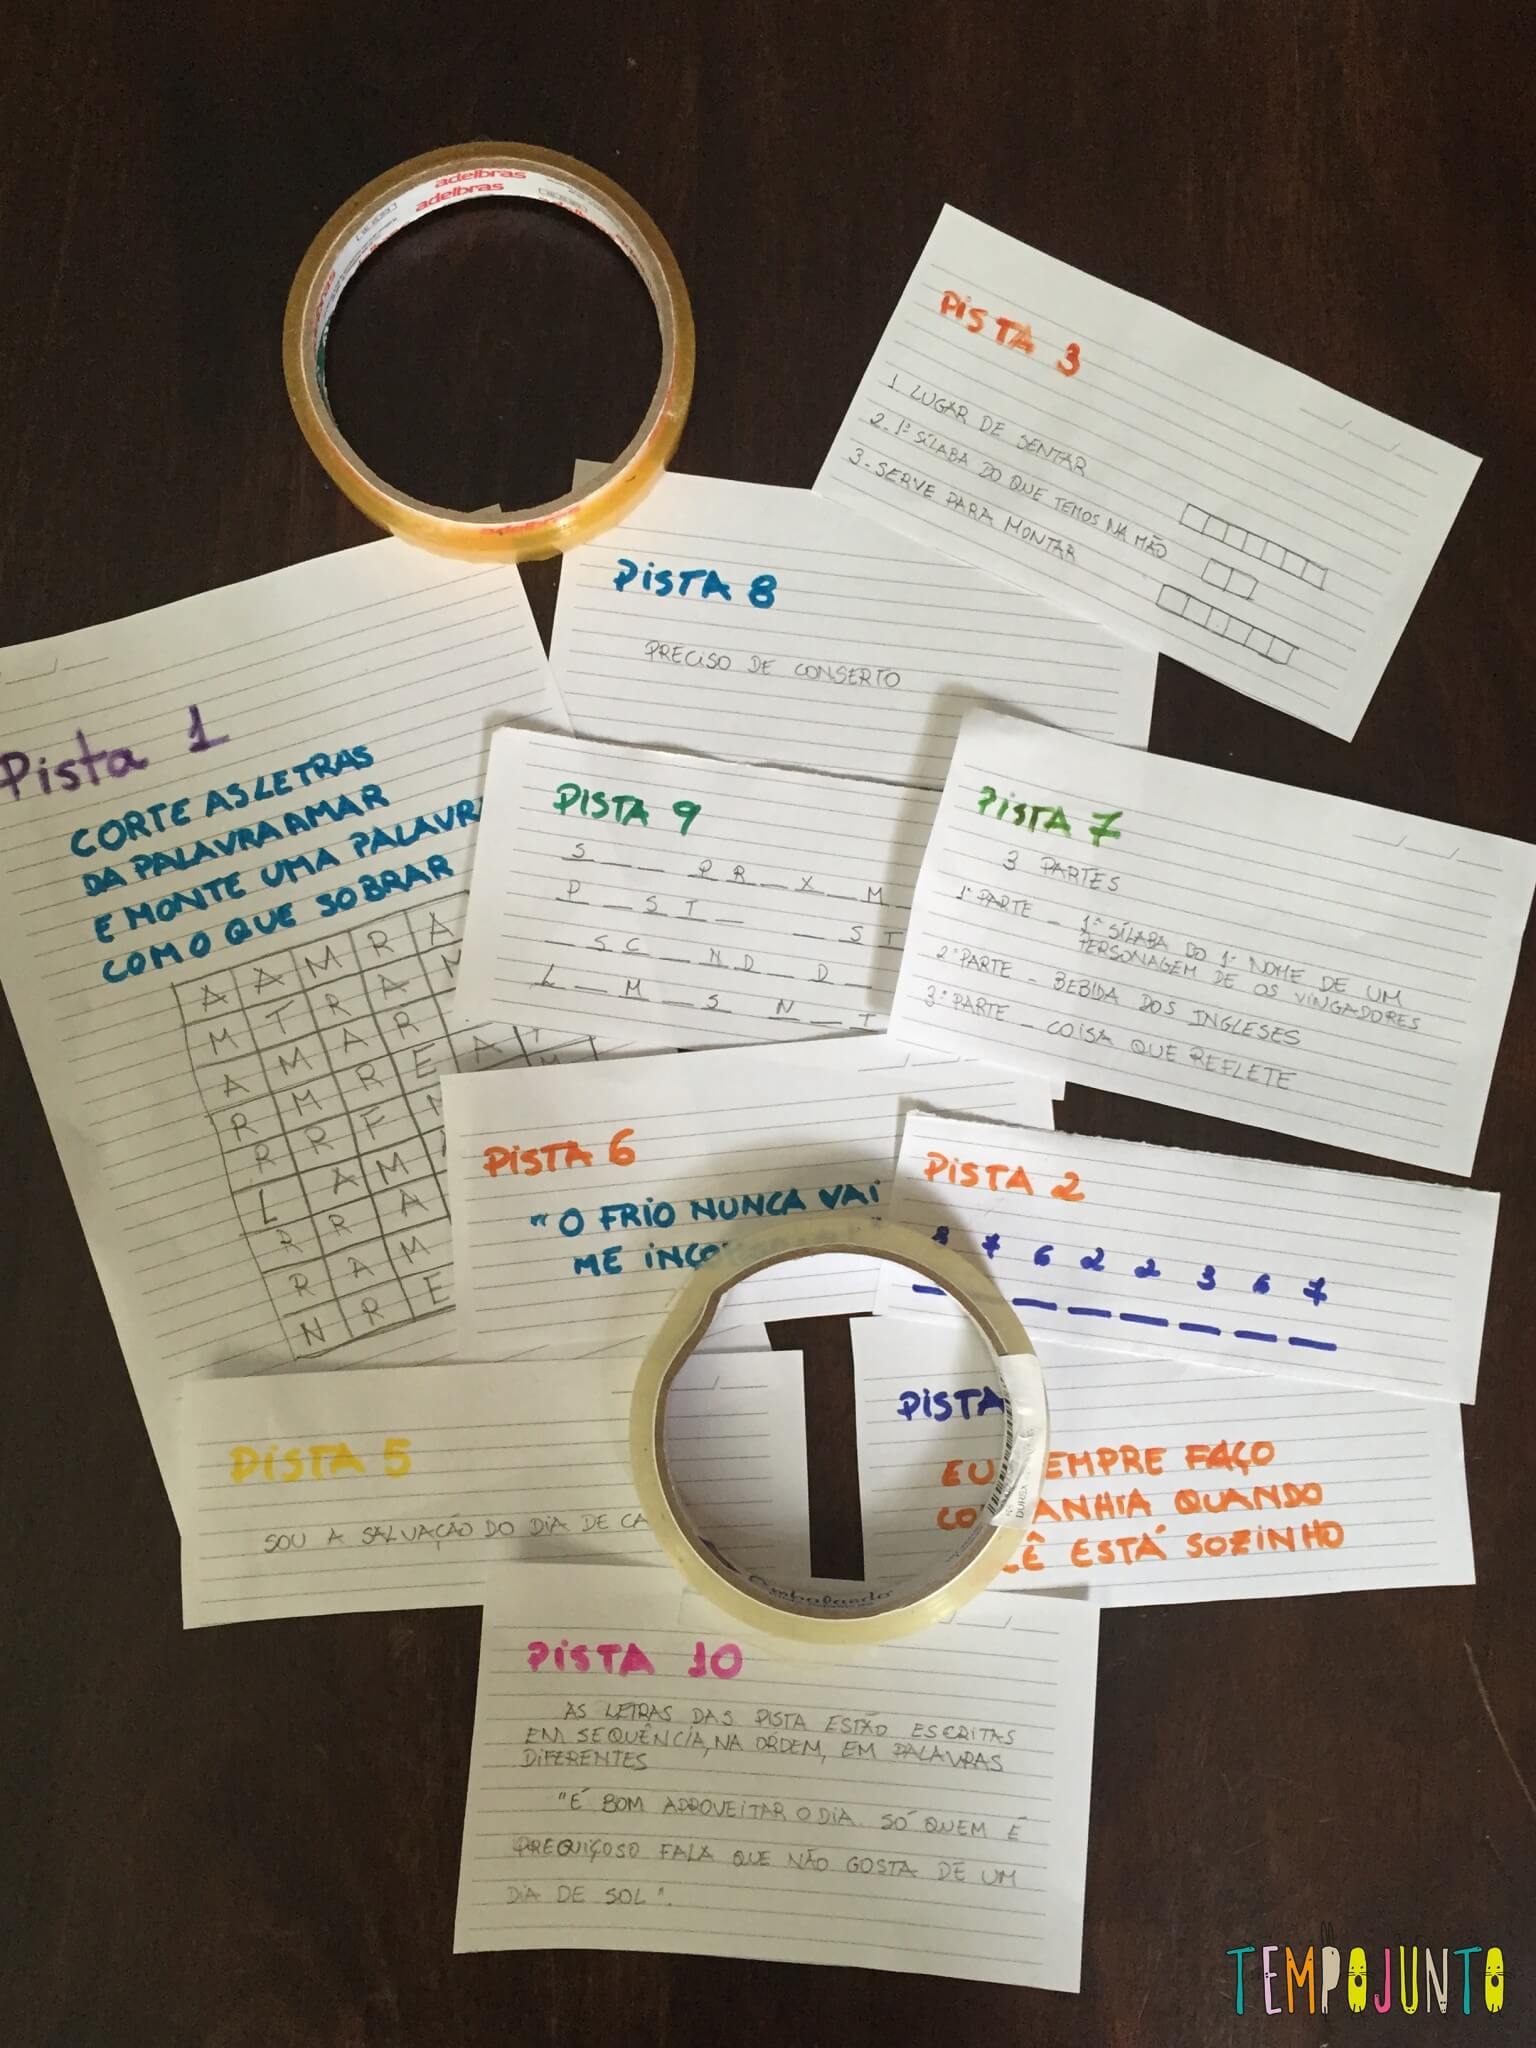 adelbras
adelbras
PISTA 3
1. LUGAR DE SENTAR
2. 1ª SÍLABA DO QUE TEMOS NA MÃO
3. SERVE PARA MONTAR
PISTA 8
PRECISO DE CONSERTO
Pista 1
CORTE AS LETRAS
DA PALAVRA AMAR
E MONTE UMA PALAVRA
COM O QUE SOBRAR
A A M R A
M T R A
A M A R
R M R E A T
R R F
L A M
R R A
R A M
N R E
PISTA 9
S _ _ P R _ X _ M
P _ S T _ _ S T
_ S C _ N D _ D _
L _ M _ S N _ T
PISTA 7
3 PARTES
1ª PARTE - 1ª SÍLABA DO 1º NOME DE UM
PERSONAGEM DE OS VINGADORES
2ª PARTE - BEBIDA DOS INGLESES
3ª PARTE - COISA QUE REFLETE
PISTA 6
"O FRIO NUNCA VAI
ME
PISTA 2
8 7 6 2 2 3 6 7
PISTA
EU SEMPRE FAÇO
COMPANHIA QUANDO
VOCÊ ESTÁ SOZINHO
PISTA 5
SOU A SALVAÇÃO DO DIA DE CA
PISTA 10
AS LETRAS DAS PISTA ESTÃO ESCRITAS
EM SEQUÊNCIA, NA ORDEM, EM PALAVRAS
DIFERENTES
"É BOM APROVEITAR O DIA. SÓ QUEM É
PREQUIÇOSO FALA QUE NÃO GOSTA DE UM
DIA DE SOL".
TEMPOJUNTO